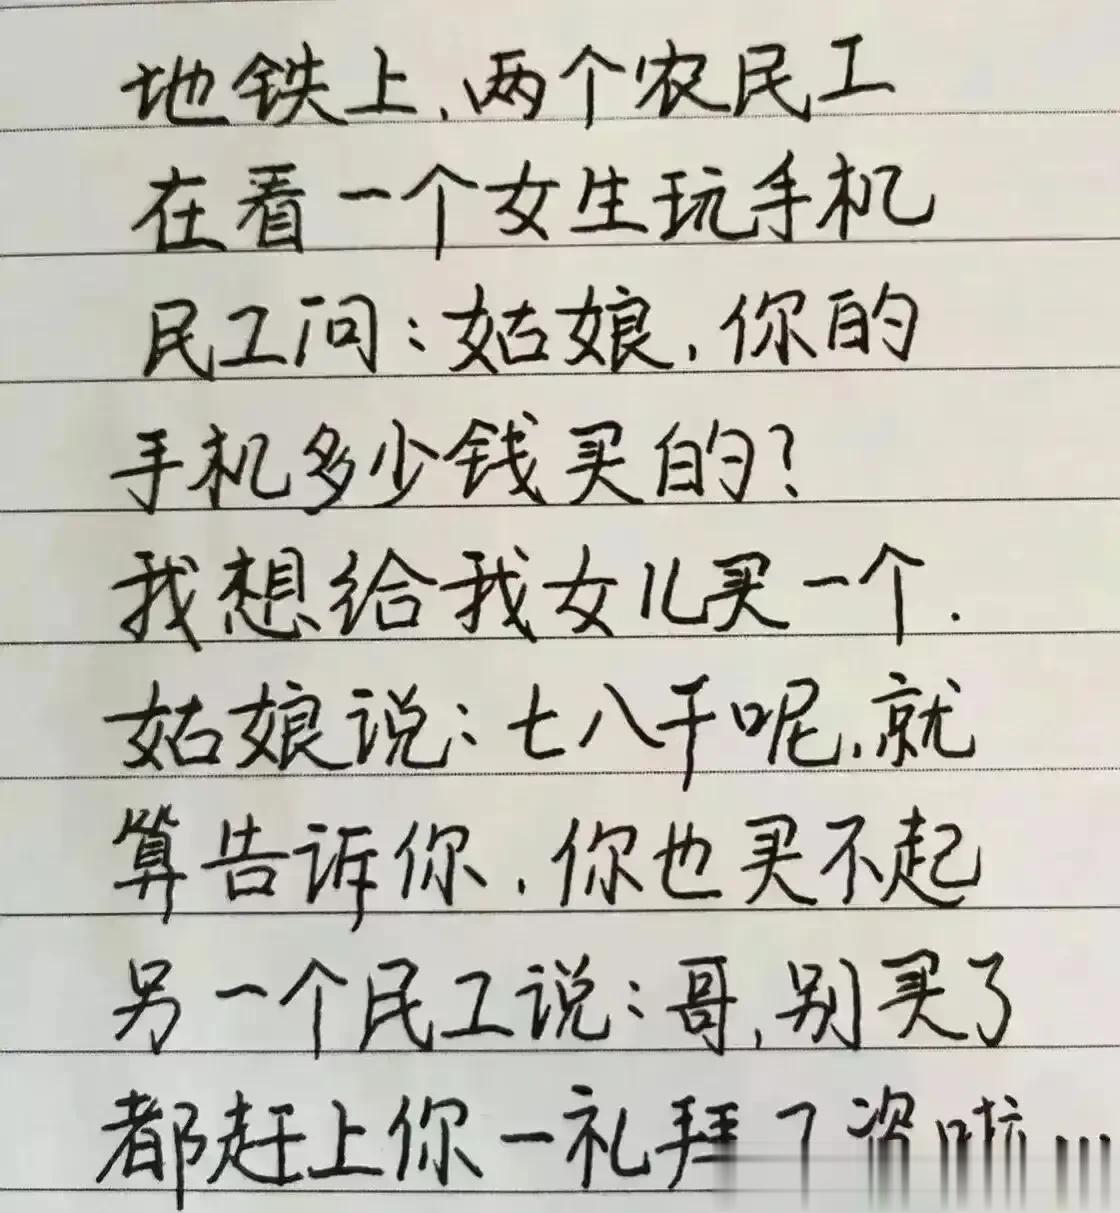 地铁上,两个农民工
在看一个女生玩手机
民工问:姑娘,你的
手机多少钱买的?
我想给我女儿买一个.
姑娘说:七八千呢,就
算告诉你,你也买不起
另一个民工说:哥,别买了
都赶上你一礼拜工资啦…